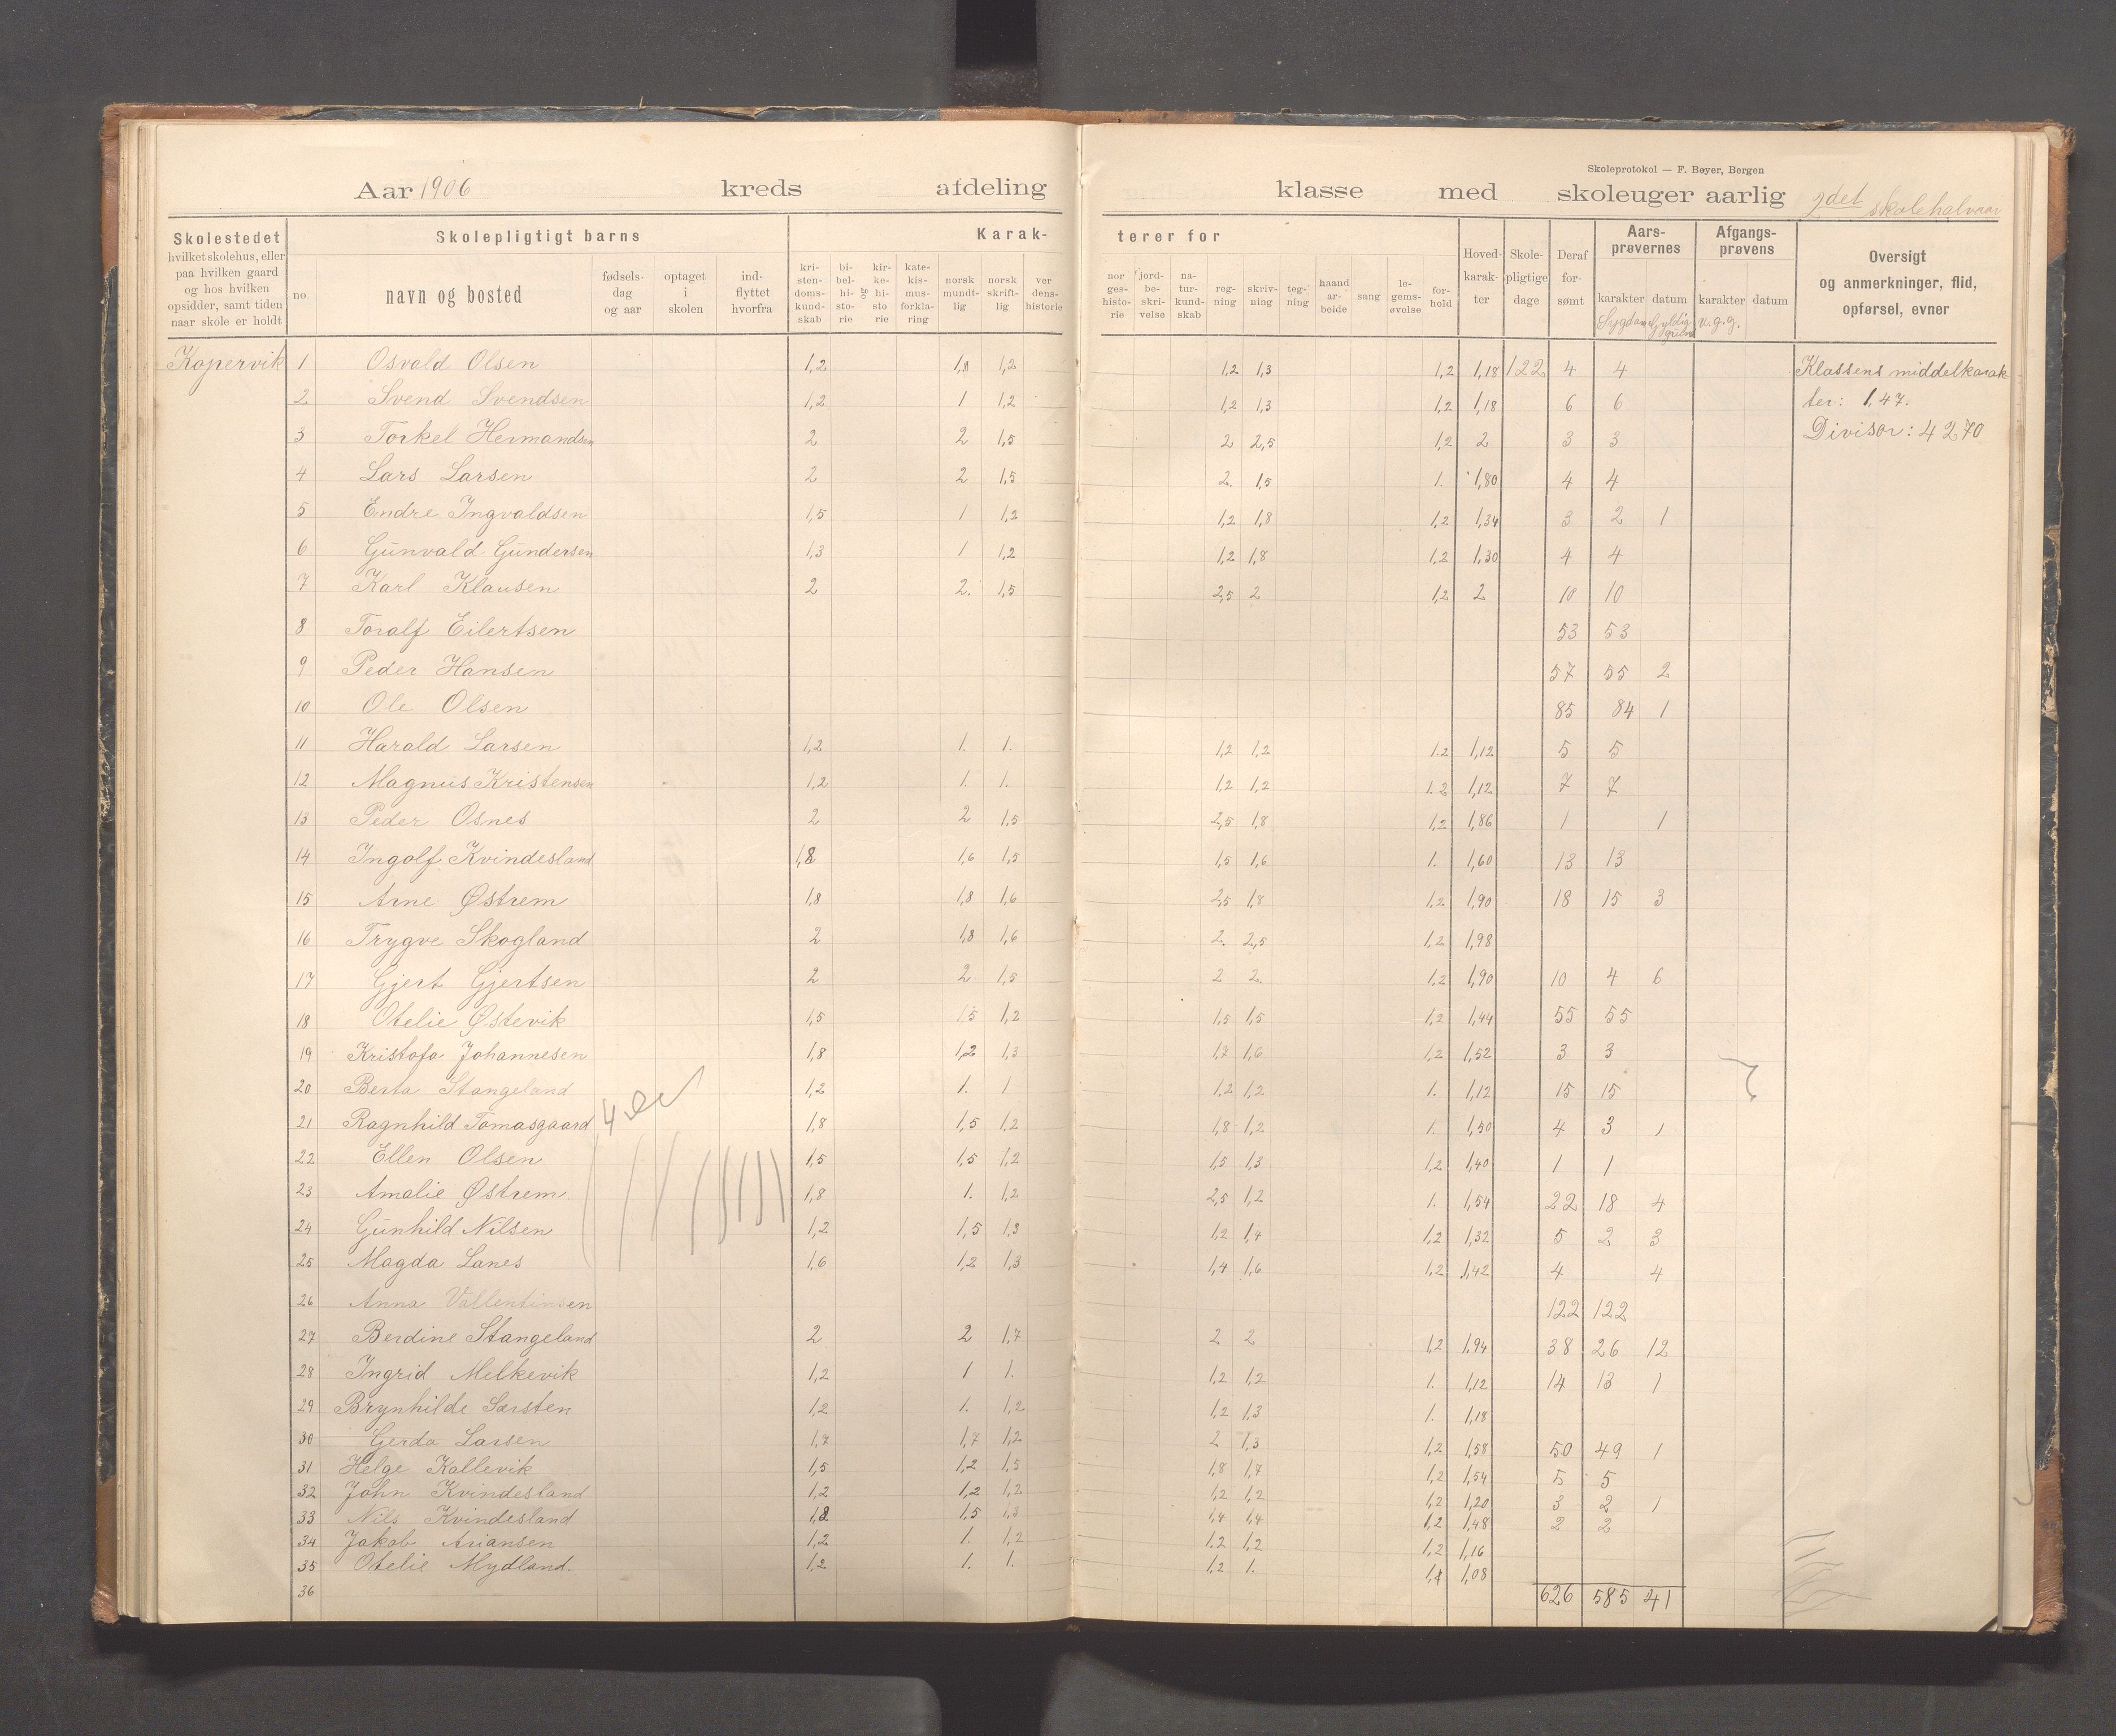 Skoleprotokol — F. Beyer, Bergen
Aar 1906 kreds afdeling klasse med skoleuger aarlig 2det skolehalvaar
Skolestedet hvilket skolehus, eller paa hvilken gaard og hos hvilken opsidder, samt tiden naar skole er holdt
Skolepligtigt barns
no. navn og bosted fødsels-dag og aar optaget i skolen ind-flyttet hvorfra
Karak-terer for
kri-sten-doms-kund-skab bi-bel-hi-sto-rie og kir-ke-hi-sto-rie kate-kis-mus-forkla-ring norsk mundt-lig norsk skrift-lig ver dens-historie nor ges-histo-rie jord-be-skri-velse na-tur-kund-skab reg-ning skriv-ning teg-ning haand ar-beide sang le-gems-øvelse for-hold
Hoved-karak-ter Skole-pligtige dage Deraf for-sømt Aars-prøvernes karakter datum Afgangs-prøvens karakter datum
Sygdom Gyldig grund u.g.g.
Oversigt og anmerkninger, flid, opførsel, evner
Kopervik 1 Osvald Olsen 1,2 1,1 1,2 1,2 1,3 1,2 1,18 122 4 4 Klassens middelkarak-
2 Svend Svendsen 1,2 1 1,2 1,2 1,3 1,2 1,18 6 6 ter: 1,47.
3 Torkel Hermandsen 2 2 1,5 2 2,5 1,2 2 3 3 Divisor: 4270
4 Lars Larsen 2 2 1,5 2. 1,5 1. 1,80 4 4
5 Endre Ingvaldsen 1,5 1 1,2 1,2 1,8 1,2 1,34 3 2 1
6 Gunvald Gundersen 1,3 1 1,2 1,2 1,8 1,2 1,30 4 4
7 Karl Klausen 2 2. 1,5 2,5 2 1,2 2 10 10
8 Toralf Eilertsen 53 53
9 Peder Hansen 57 55 2
10 Ole Olsen 85 84 1
11 Harald Larsen 1,2 1. 1. 1,2 1,2 1.2 1,12 5 5
12 Magnus Kristensen 1,2 1. 1. 1,2 1,2 1.2 1,12 7 7
13 Peder Osnes 2 2 1,5 2,5 1,8 1,2 1,86 1 1
14 Ingolf Kvindesland 1,8 1,6 1,5 1,5 1,6 1. 1,60 13 13
15 Arne Østrem 1,8 1,8 1,6 2,5 1,8 1,2 1,90 18 15 3
16 Trygve Skogland 2 1,8 1,6 2. 2,5 1,2 1,98
17 Gjert Gjertsen 2 2 1,5 2 2. 1,2 1,90 10 4 6
18 Otelie Østevik 1,5 1,5 1,2 1,5 1,5 1,2 1,44 55 55
19 Kristofa Johannesen 1,8 1,2 1,3 1,7 1,6 1,2 1,52 3 3
20 Berta Stangeland 1,2 1. 1 1,2 1,2 1. 1,12 15 15
21 Ragnhild Tomasgaard 1,8 1,5 1,2 1,8 1,2 1. 1,50 4 3 1
22 Ellen Olsen 1,5 1,5 1,2 1,5 1,3 1,2 1,40 1 1
23 Amalie Østrem 1,8 1. 1,2 2,5 1,2 1. 1,54 22 18 4
24 Gunhild Nilsen 1,2 1,5 1,3 1,2 1,4 1,2 1,32 5 2 3
25 Magda Lanes 1,6 1,2 1,3 1,4 1,6 1,2 1,42 4 4
26 Anna Vallentinsen 122 122
27 Berdine Stangeland 2 2 1,7 2 2 1,2 1,94 38 26 12
28 Ingrid Melkevik 1,2 1 1. 1,2 1,2 1. 1,12 14 13 1
29 Brynhilde Sørsten 1,2 1. 1,2 1,2 1,3 1. 1,18
30 Gerda Larsen 1,7 1,7 1,2 2 1,3 1,2 1,58 50 49 1
31 Helge Kallevik 1,5 1,2 1,5 1,8 1,7 1,2 1,54 5 5
32 John Kvindesland 1,2 1,2 1,2 1,2 1,2 1,2 1,20 3 2 1
33 Nils Kvindesland 1,8 1,5 1,3 1,4 1,4 1,2 1,48 2 2
34 Jakob Ariansen 1,2 1. 1,2 1,2 1,2 1,2 1,16
35 Otelie Mydland. 1,2 1. 1. 1,2 1. 1,1 1,08
36 626 585 41